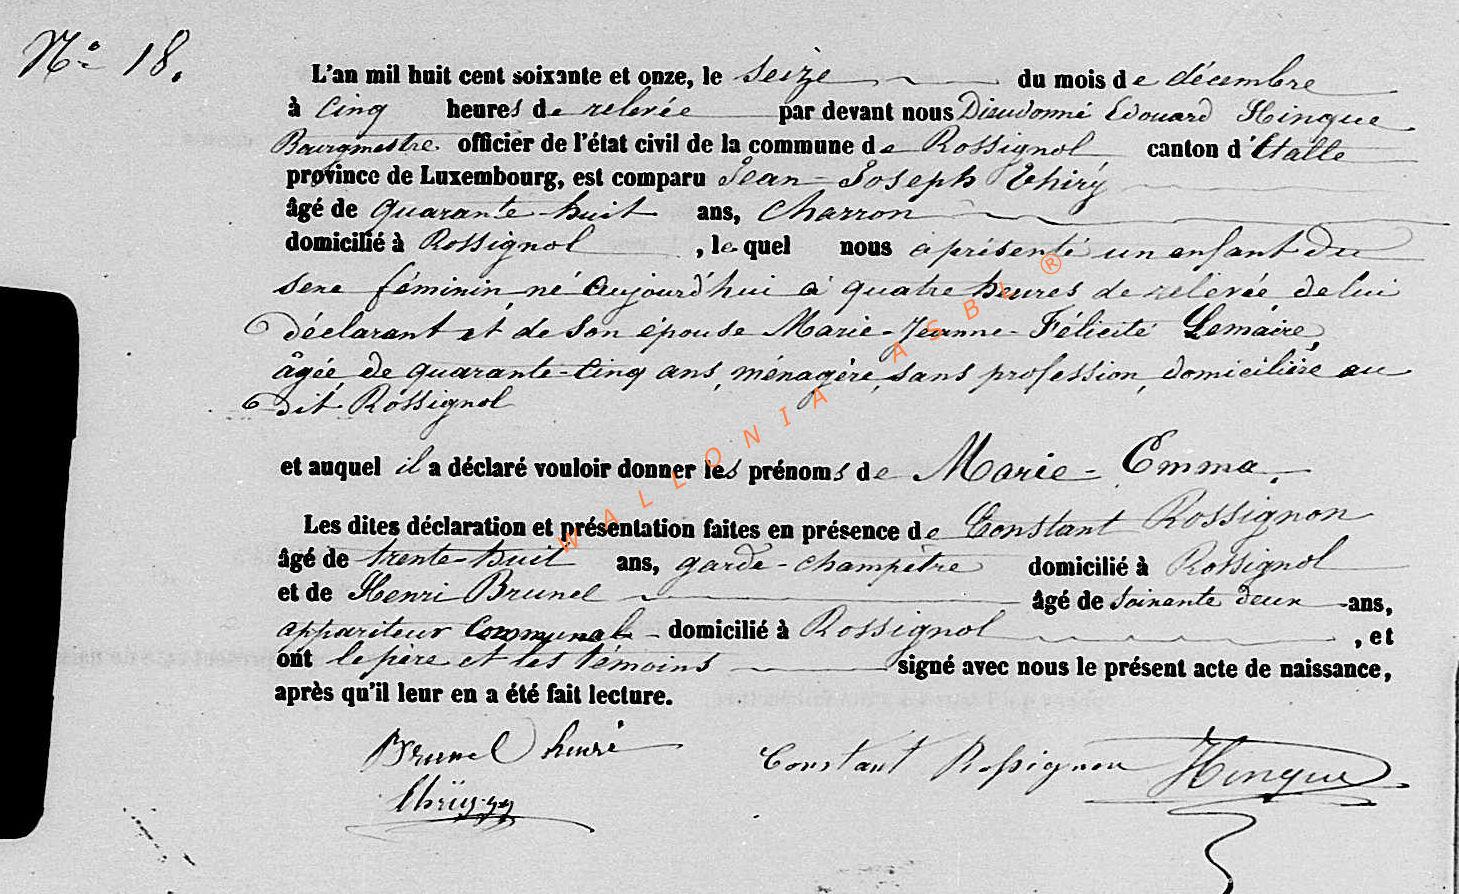 N° 18.
L'an mil huit cent soixante et onze, le seize du mois de décembre
à cinq heures de relevée par devant nous Dieudonné Edouard Hinque
Bourgmestre officier de l'état civil de la commune de Rossignol, canton d'Etalle
province de Luxembourg, est comparu Jean-Joseph Thiry
âgé de quarante-huit ans, charron
domicilié à Rossignol, lequel nous a présenté un enfant du
sexe féminin, né aujourd'hui à quatre heures de relevée, de lui
déclarant et de son épouse Marie-Jeanne-Félicité Lemaire,
âgée de quarante-cinq ans, ménagère, sans profession, domiciliée au
dit Rossignol
et auquel il a déclaré vouloir donner les prénoms de Marie-Emma.
Les dites déclaration et présentation faites en présence de Constant Rossignon
âgé de trente-huit ans, garde-champêtre domicilié à Rossignol
et de Henri Brunel âgé de soixante deux ans,
appariteur communal domicilié à Rossignol, et
ont le père et les témoins signé avec nous le présent acte de naissance,
après qu'il leur en a été fait lecture.
Brunel henri Constant Rossignon Hinque
Thiry
WALLONIA ASBL ®